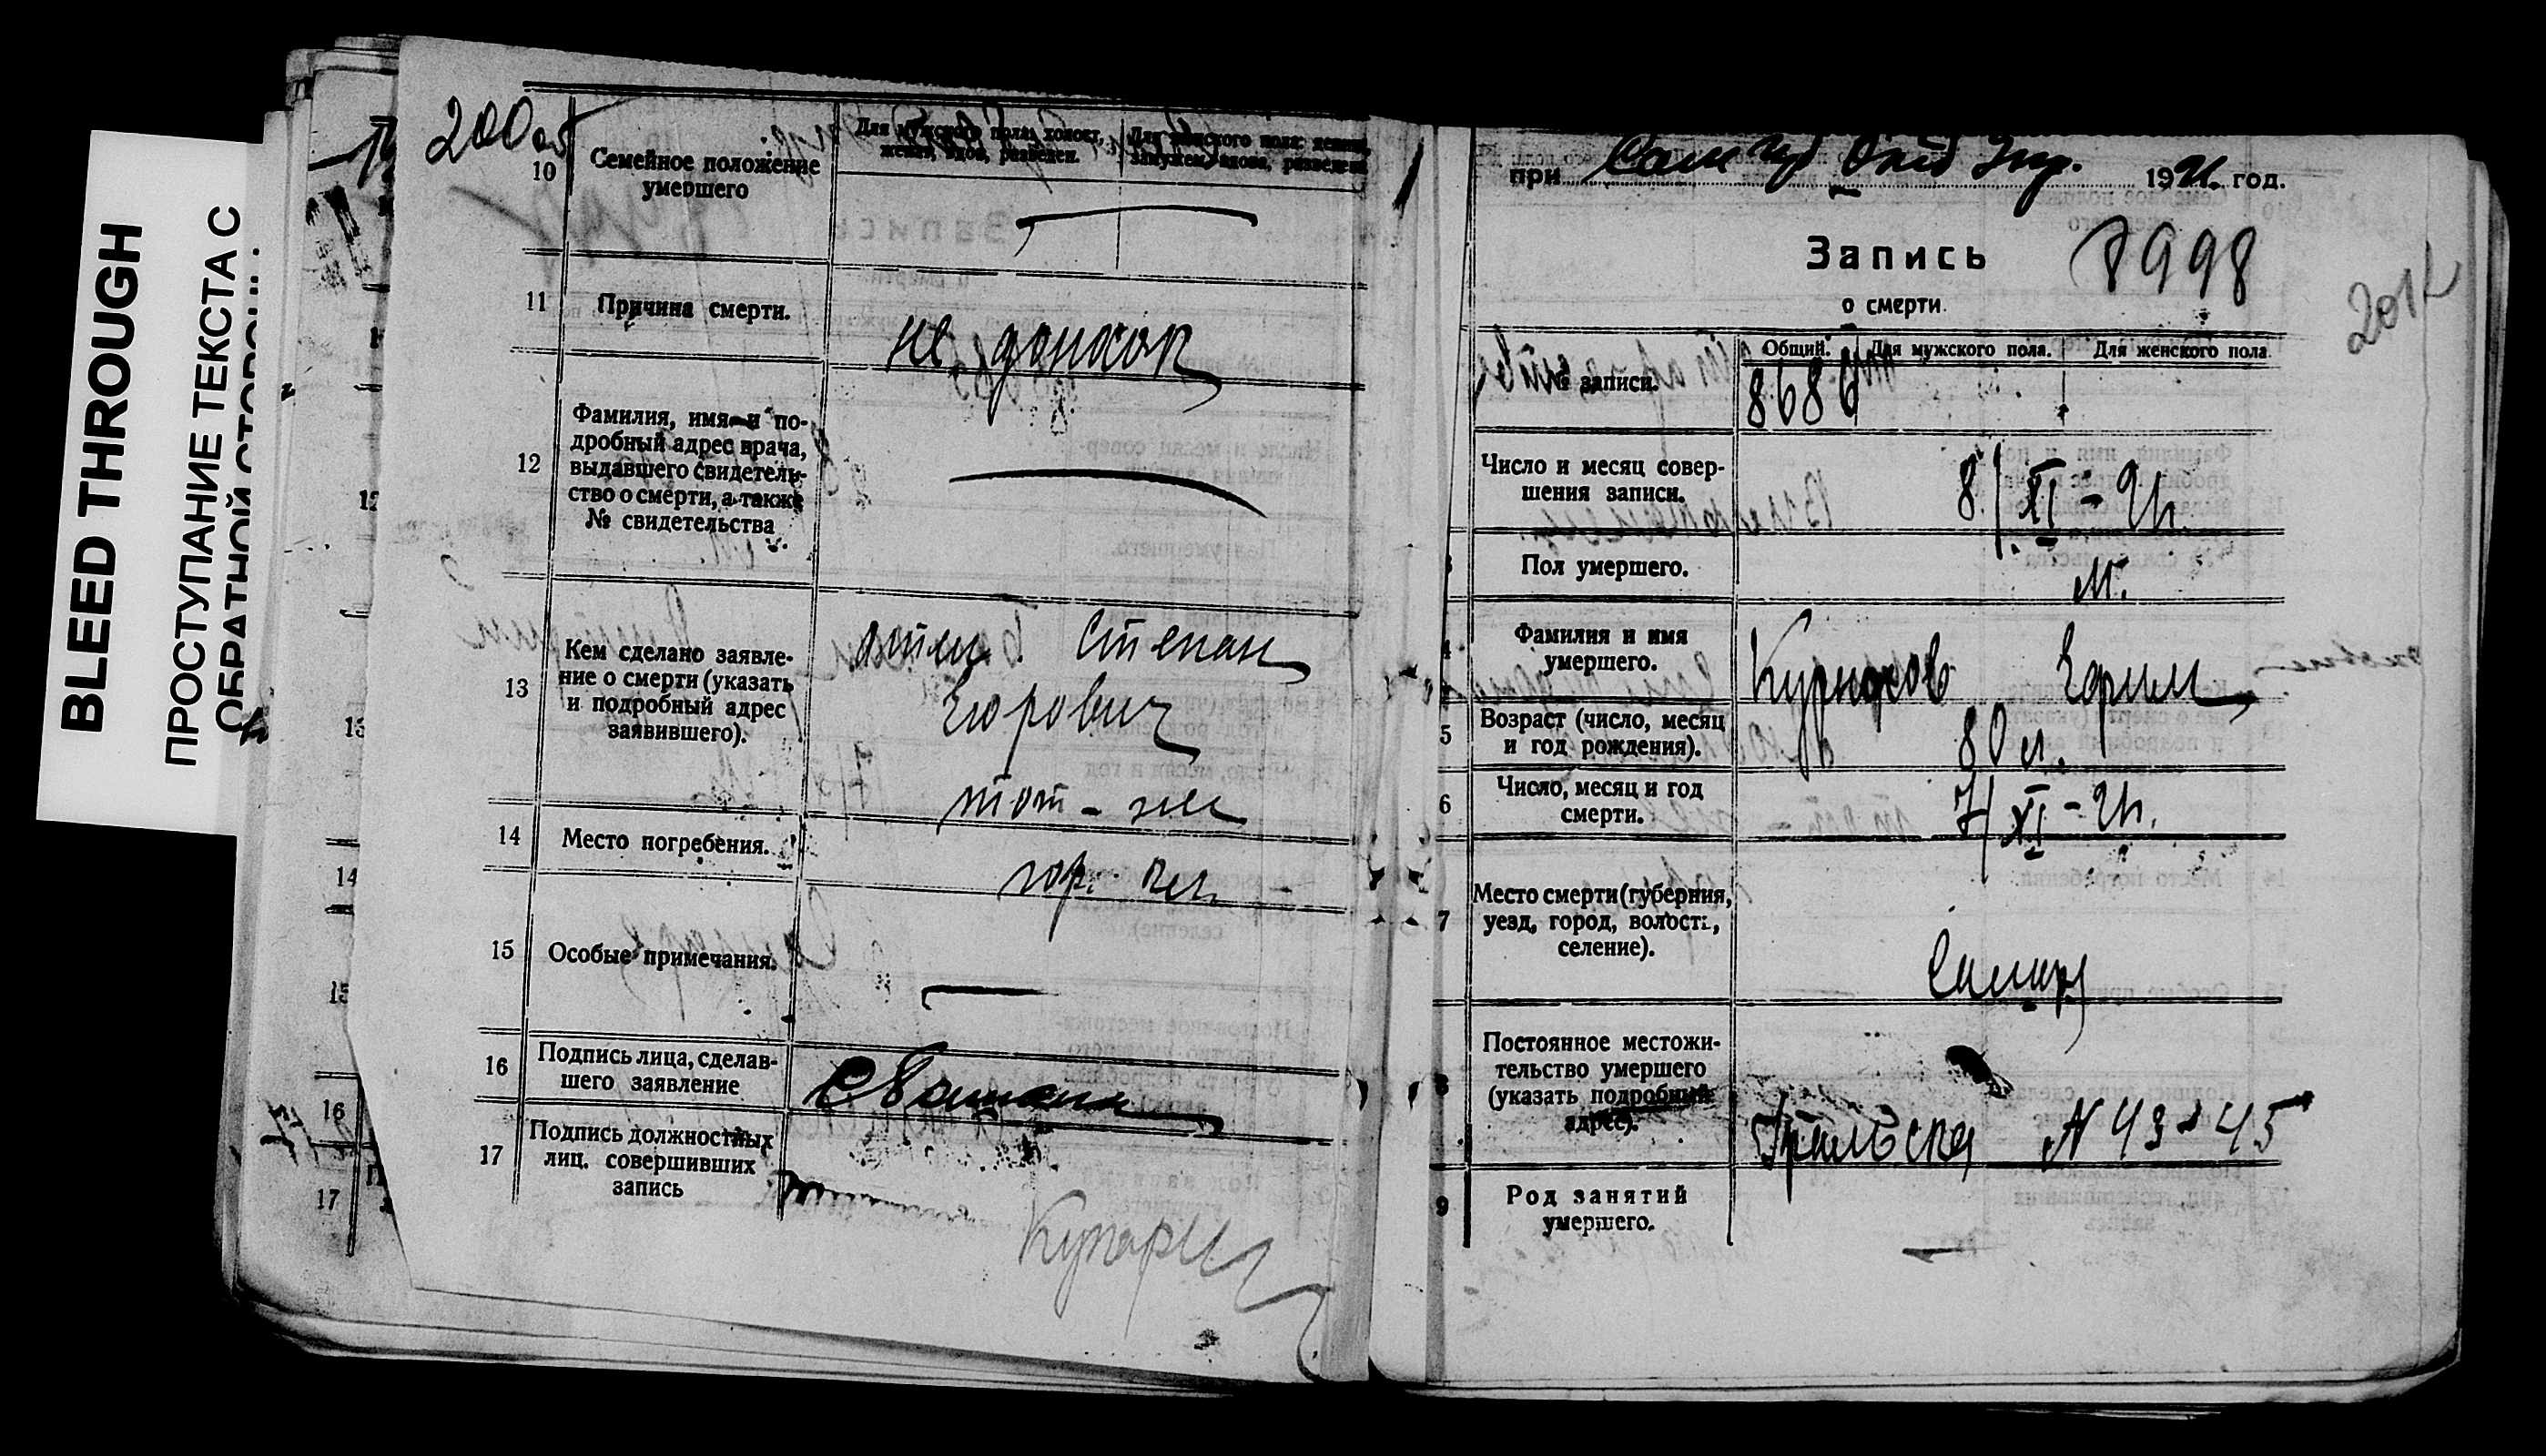 BLEED THROUGH
ПРОСТУПАНИЕ ТЕКСТА С
ОБРАТНОЙ СТОРОНЫ
200 об
10
Семейное положение
умершего
Для мужского пола: холост,
женат, вдов, разведен.
Для женского пола: девица,
замужем, вдова, разведена
11
Причина смерти.
не доносок
12
Фамилия, имя и по-
дробный адрес врача,
выдавшего свидетель-
ство о смерти, а также
№ свидетельства
13
Кем сделано заявле-
ние о смерти (указать
и подробный адрес
заявившего).
отец Степан
Егорович
тот-же
14
Место погребения.
гор.
15
Особые примечания.
16
Подпись лица, сделав-
шего заявление
17
Подпись должностных
лиц. совершивших
запись
14
16
17
при 1921 год.
Запись
7998
о смерти
201
№ записи.
Общий.
Для мужского пола.
Для женского пола
8686
Число и месяц совер-
шения записи.
8/XI-21
Пол умершего.
м.
Фамилия и имя
умершего.
5
Возраст (число, месяц
и год рождения).
80 л.
6
Число, месяц и год
смерти.
7/XI-21
7
Место смерти (губерния,
уезд, город, волость,
селение).
Самара
8
Постоянное местожи-
тельство умершего
(указать подробный
адрес).
Уральская № 43-45
9
Род занятий
умершего.